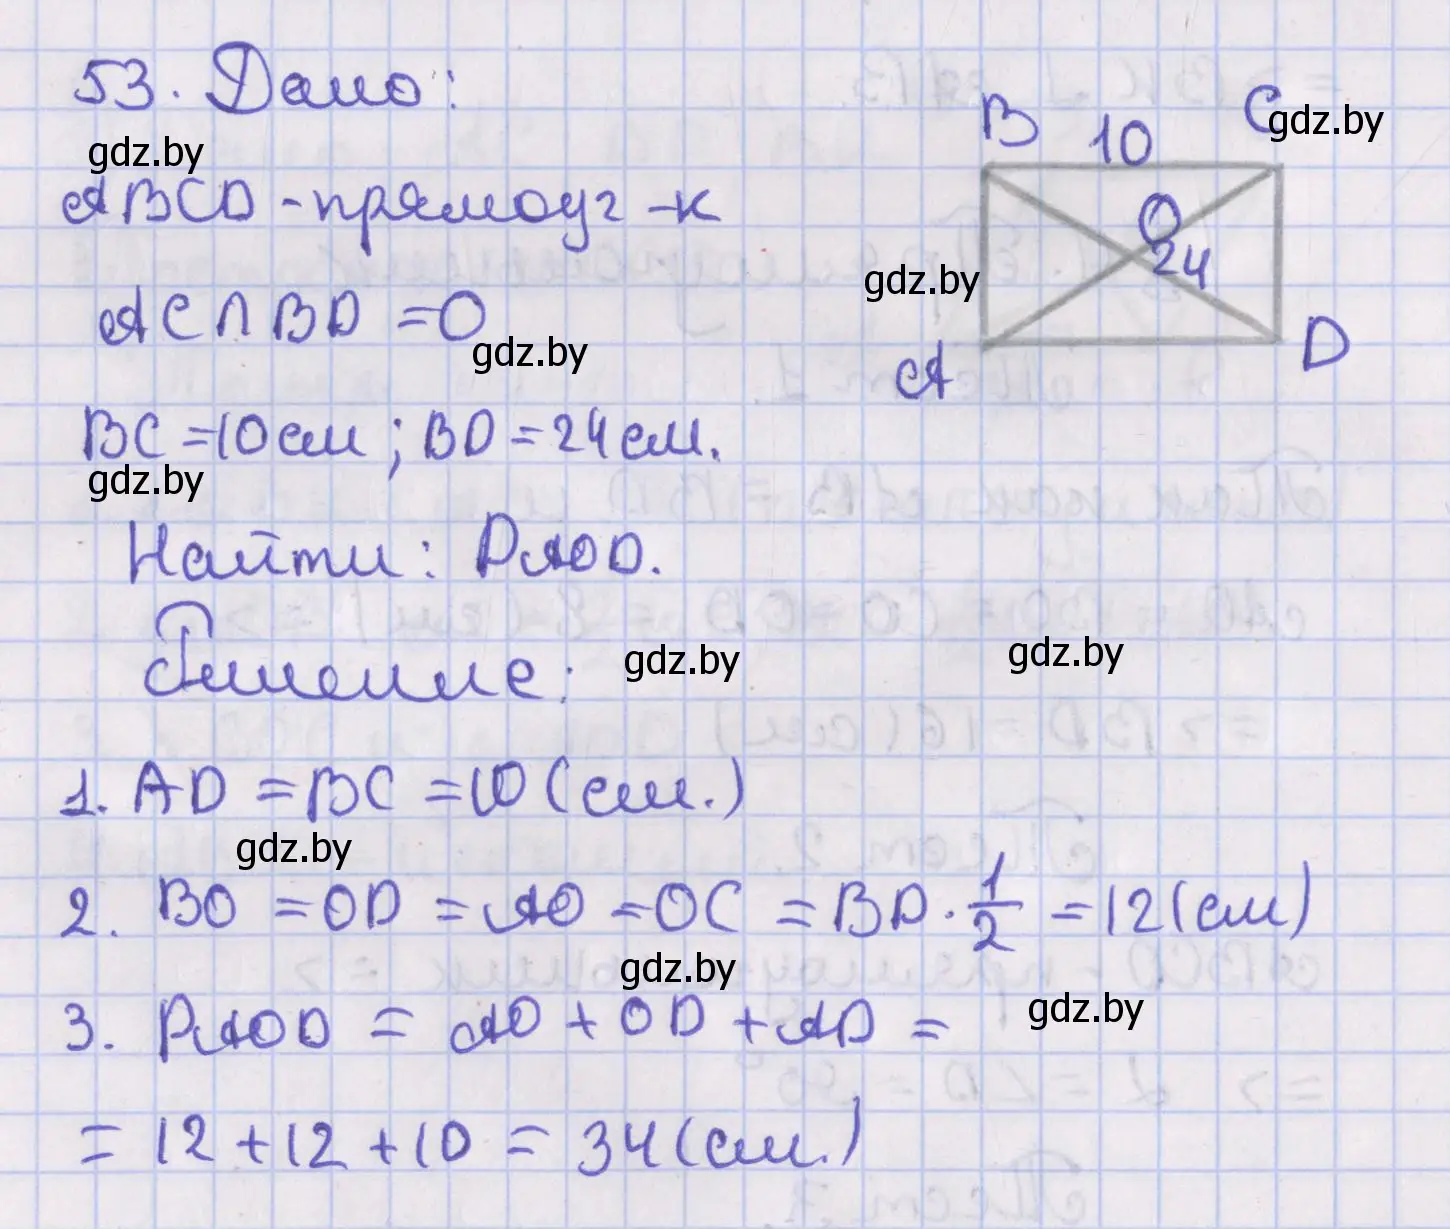 53. Дано:
B 10 C gdz.by
gdz.by
ABCD - прямоуг-к
O
24
gdz.by
AC ∩ BD = O
gdz.by
A D
BC = 10 см ; BD = 24 см.
gdz.by
Найти: PAOD.
Решение:
gdz.by gdz.by
1. AD = BC = 10 (см.)
gdz.by
2. BO = OD = AO = OC = BD · 1/2 = 12 (см)
gdz.by
3. PAOD = AO + OD + AD =
gdz.by
= 12 + 12 + 10 = 34 (см.)